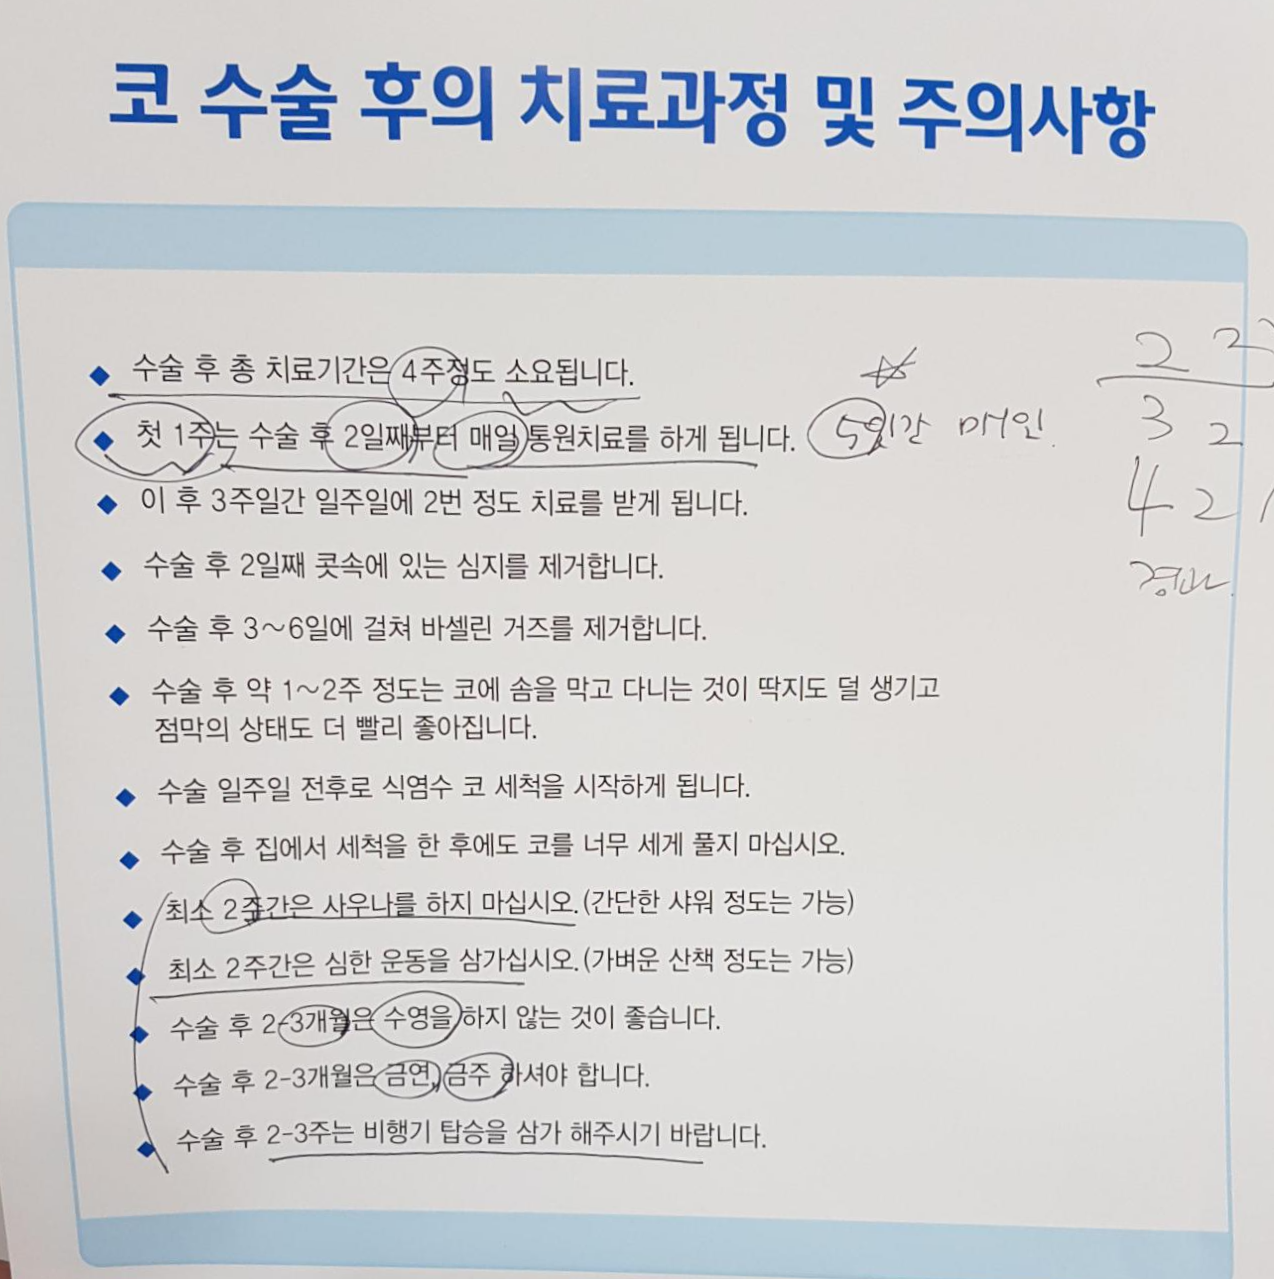 코 수술 후의 치료과정 및 주의사항
◆ 수술 후 총 치료기간은 4주정도 소요됩니다.
2 2
◆ 첫 1주는 수술 후 2일째부터 매일 통원치료를 하게 됩니다. 5일간 매일.
3 2
◆ 이 후 3주일간 일주일에 2번 정도 치료를 받게 됩니다.
4 2
◆ 수술 후 2일째 콧속에 있는 심지를 제거합니다.
◆ 수술 후 3~6일에 걸쳐 바셀린 거즈를 제거합니다.
◆ 수술 후 약 1~2주 정도는 코에 솜을 막고 다니는 것이 딱지도 덜 생기고
점막의 상태도 더 빨리 좋아집니다.
◆ 수술 일주일 전후로 식염수 코 세척을 시작하게 됩니다.
◆ 수술 후 집에서 세척을 한 후에도 코를 너무 세게 풀지 마십시오.
◆ 최소 2주간은 사우나를 하지 마십시오.(간단한 샤워 정도는 가능)
◆ 최소 2주간은 심한 운동을 삼가십시오.(가벼운 산책 정도는 가능)
◆ 수술 후 2-3개월은 수영을 하지 않는 것이 좋습니다.
◆ 수술 후 2-3개월은 금연, 금주 하셔야 합니다.
◆ 수술 후 2-3주는 비행기 탑승을 삼가 해주시기 바랍니다.